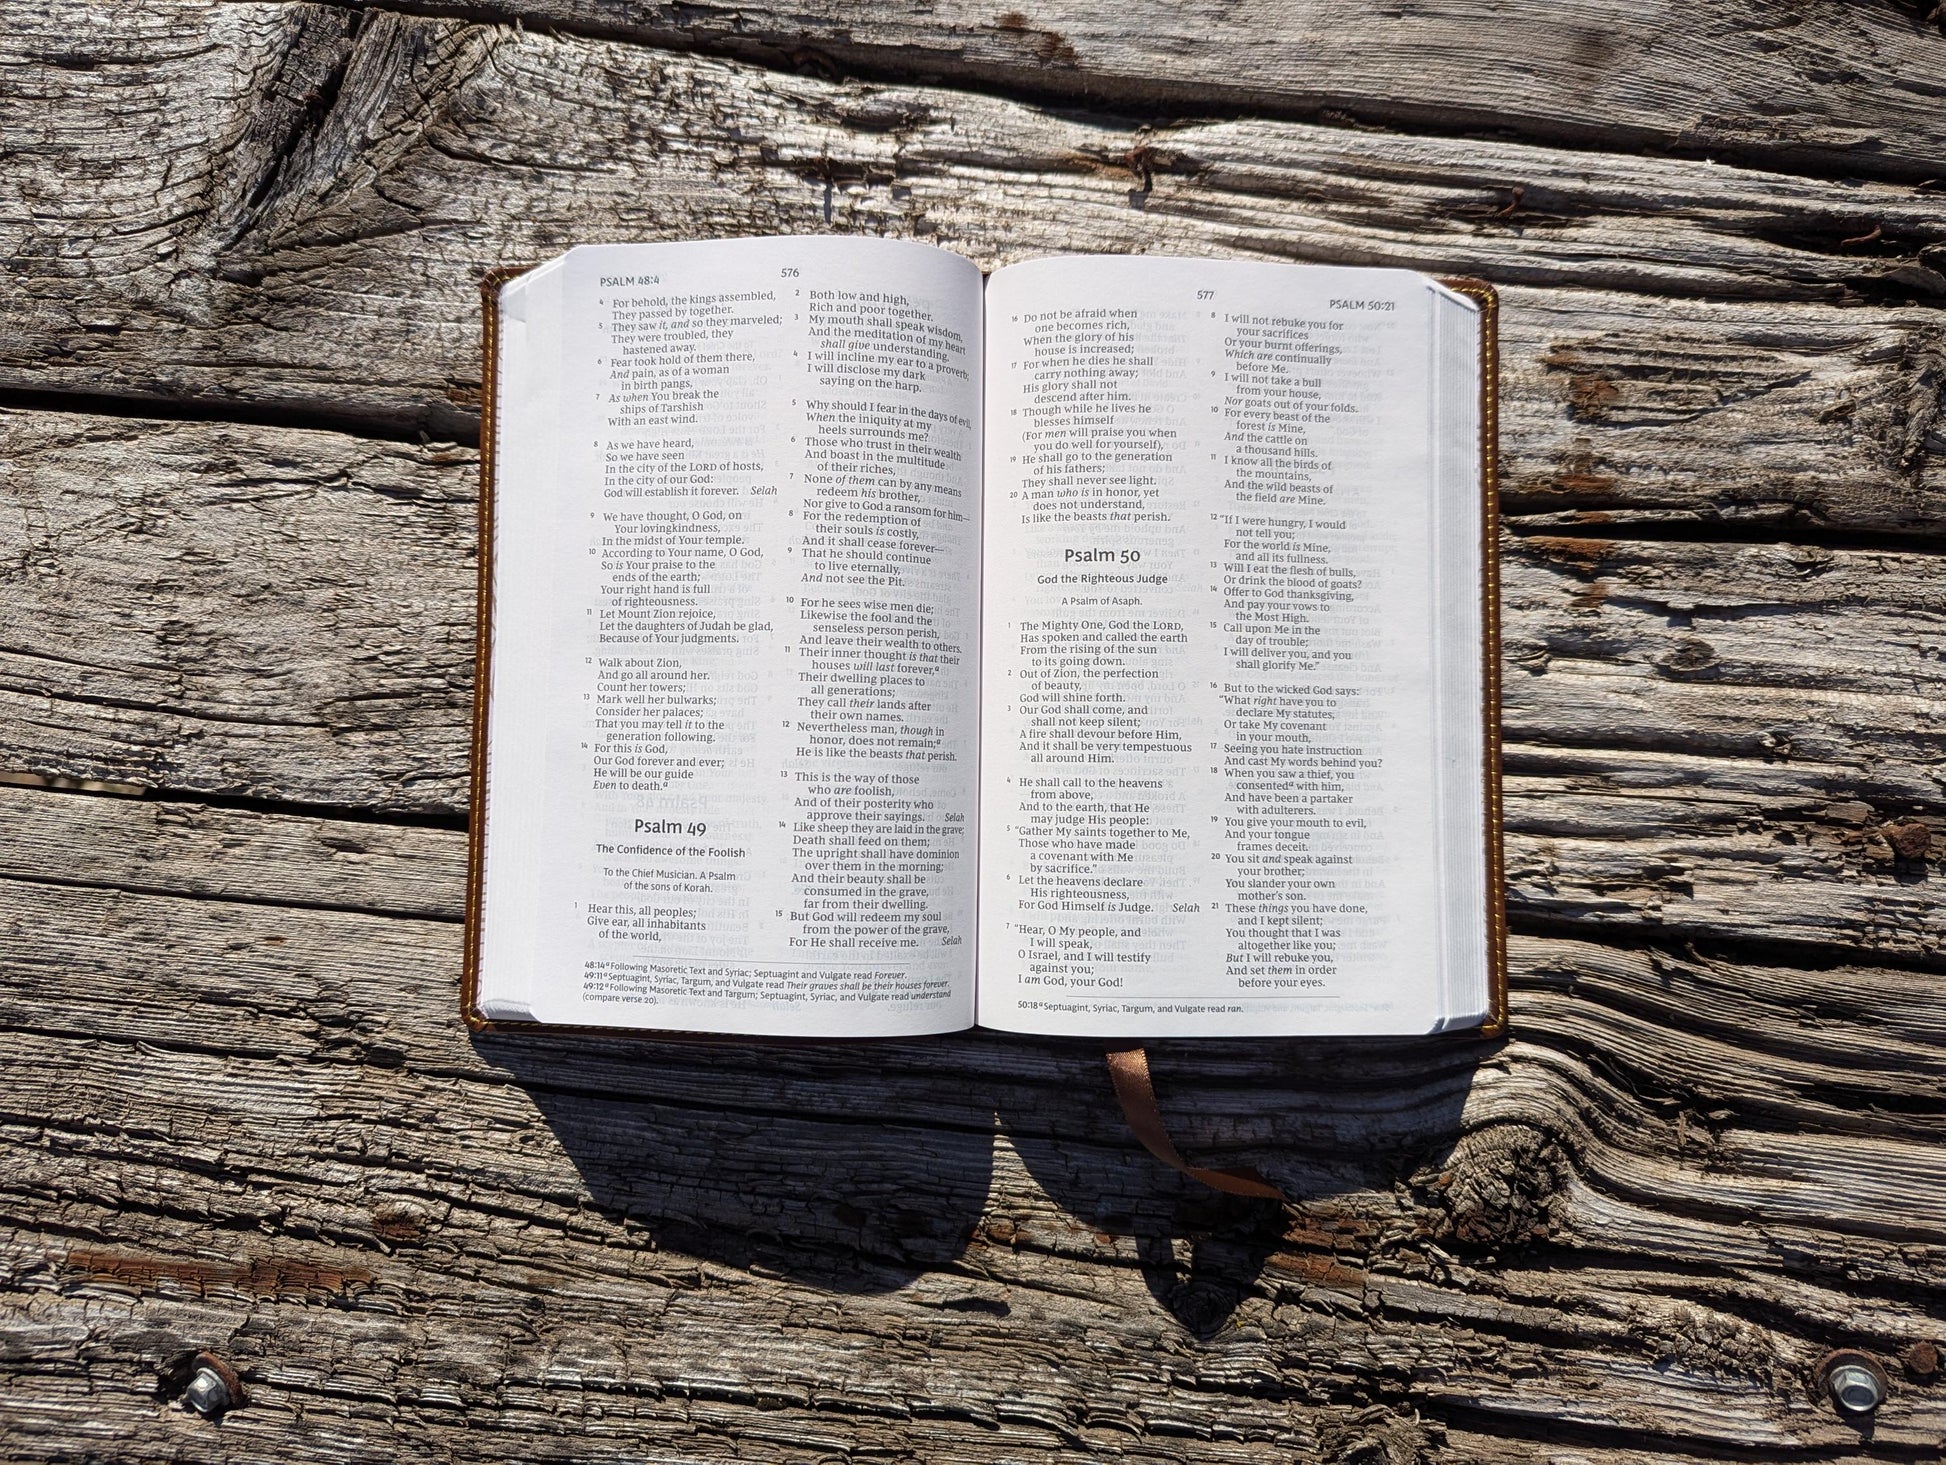 PSALM 48:4
576
4 For behold, the kings assembled,
They passed by together.
5 They saw it, and so they marveled;
They were troubled, they
hastened away.
6 Fear took hold of them there,
And pain, as of a woman
in birth pangs,
7 As when You break the
ships of Tarshish
With an east wind.
8 As we have heard,
So we have seen
In the city of the LORD of hosts,
In the city of our God:
God will establish it forever. Selah
9 We have thought, O God, on
Your lovingkindness,
In the midst of Your temple.
10 According to Your name, O God,
So is Your praise to the
ends of the earth;
Your right hand is full
of righteousness.
11 Let Mount Zion rejoice,
Let the daughters of Judah be glad,
Because of Your judgments.
12 Walk about Zion,
And go all around her.
Count her towers;
13 Mark well her bulwarks;
Consider her palaces;
That you may tell it to the
generation following.
14 For this is God,
Our God forever and ever;
He will be our guide
Even to death.a
Psalm 49
The Confidence of the Foolish
To the Chief Musician. A Psalm
of the sons of Korah.
1 Hear this, all peoples;
Give ear, all inhabitants
of the world,
2 Both low and high,
Rich and poor together.
3 My mouth shall speak wisdom,
And the meditation of my heart
shall give understanding.
4 I will incline my ear to a proverb;
I will disclose my dark
saying on the harp.
5 Why should I fear in the days of evil,
When the iniquity at my
heels surrounds me?
6 Those who trust in their wealth
And boast in the multitude
of their riches,
7 None of them can by any means
redeem his brother,
Nor give to God a ransom for him—
8 For the redemption of
their souls is costly,
And it shall cease forever—
9 That he should continue
to live eternally,
And not see the Pit.
10 For he sees wise men die;
Likewise the fool and the
senseless person perish,
And leave their wealth to others.
11 Their inner thought is that their
houses will last forever,a
Their dwelling places to
all generations;
They call their lands after
their own names.
12 Nevertheless man, though in
honor, does not remain;a
He is like the beasts that perish.
13 This is the way of those
who are foolish,
And of their posterity who
approve their sayings. Selah
14 Like sheep they are laid in the grave;
Death shall feed on them;
The upright shall have dominion
over them in the morning;
And their beauty shall be
consumed in the grave,
far from their dwelling.
15 But God will redeem my soul
from the power of the grave,
For He shall receive me. Selah
48:14 a Following Masoretic Text and Syriac; Septuagint and Vulgate read Forever.
49:11 a Septuagint, Syriac, Targum, and Vulgate read Their graves shall be their houses forever.
49:12 a Following Masoretic Text and Targum; Septuagint, Syriac, and Vulgate read understand
(compare verse 20).
577
PSALM 50:21
16 Do not be afraid when
one becomes rich,
When the glory of his
house is increased;
17 For when he dies he shall
carry nothing away;
His glory shall not
descend after him.
18 Though while he lives he
blesses himself
(For men will praise you when
you do well for yourself),
19 He shall go to the generation
of his fathers;
They shall never see light.
20 A man who is in honor, yet
does not understand,
Is like the beasts that perish.
Psalm 50
God the Righteous Judge
A Psalm of Asaph.
1 The Mighty One, God the LORD,
Has spoken and called the earth
From the rising of the sun
to its going down.
2 Out of Zion, the perfection
of beauty,
God will shine forth.
3 Our God shall come, and
shall not keep silent;
A fire shall devour before Him,
And it shall be very tempestuous
all around Him.
4 He shall call to the heavens
from above,
And to the earth, that He
may judge His people:
5 “Gather My saints together to Me,
Those who have made
a covenant with Me
by sacrifice.”
6 Let the heavens declare
His righteousness,
For God Himself is Judge. Selah
7 “Hear, O My people, and
I will speak,
O Israel, and I will testify
against you;
I am God, your God!
8 I will not rebuke you for
your sacrifices
Or your burnt offerings,
Which are continually
before Me.
9 I will not take a bull
from your house,
Nor goats out of your folds.
10 For every beast of the
forest is Mine,
And the cattle on
a thousand hills.
11 I know all the birds of
the mountains,
And the wild beasts of
the field are Mine.
12 “If I were hungry, I would
not tell you;
For the world is Mine,
and all its fullness.
13 Will I eat the flesh of bulls,
Or drink the blood of goats?
14 Offer to God thanksgiving,
And pay your vows to
the Most High.
15 Call upon Me in the
day of trouble;
I will deliver you, and you
shall glorify Me.”
16 But to the wicked God says:
“What right have you to
declare My statutes,
Or take My covenant
in your mouth,
17 Seeing you hate instruction
And cast My words behind you?
18 When you saw a thief, you
consenteda with him,
And have been a partaker
with adulterers.
19 You give your mouth to evil,
And your tongue
frames deceit.
20 You sit and speak against
your brother;
You slander your own
mother’s son.
21 These things you have done,
and I kept silent;
You thought that I was
altogether like you;
But I will rebuke you,
And set them in order
before your eyes.
50:18 a Septuagint, Syriac, Targum, and Vulgate read ran.